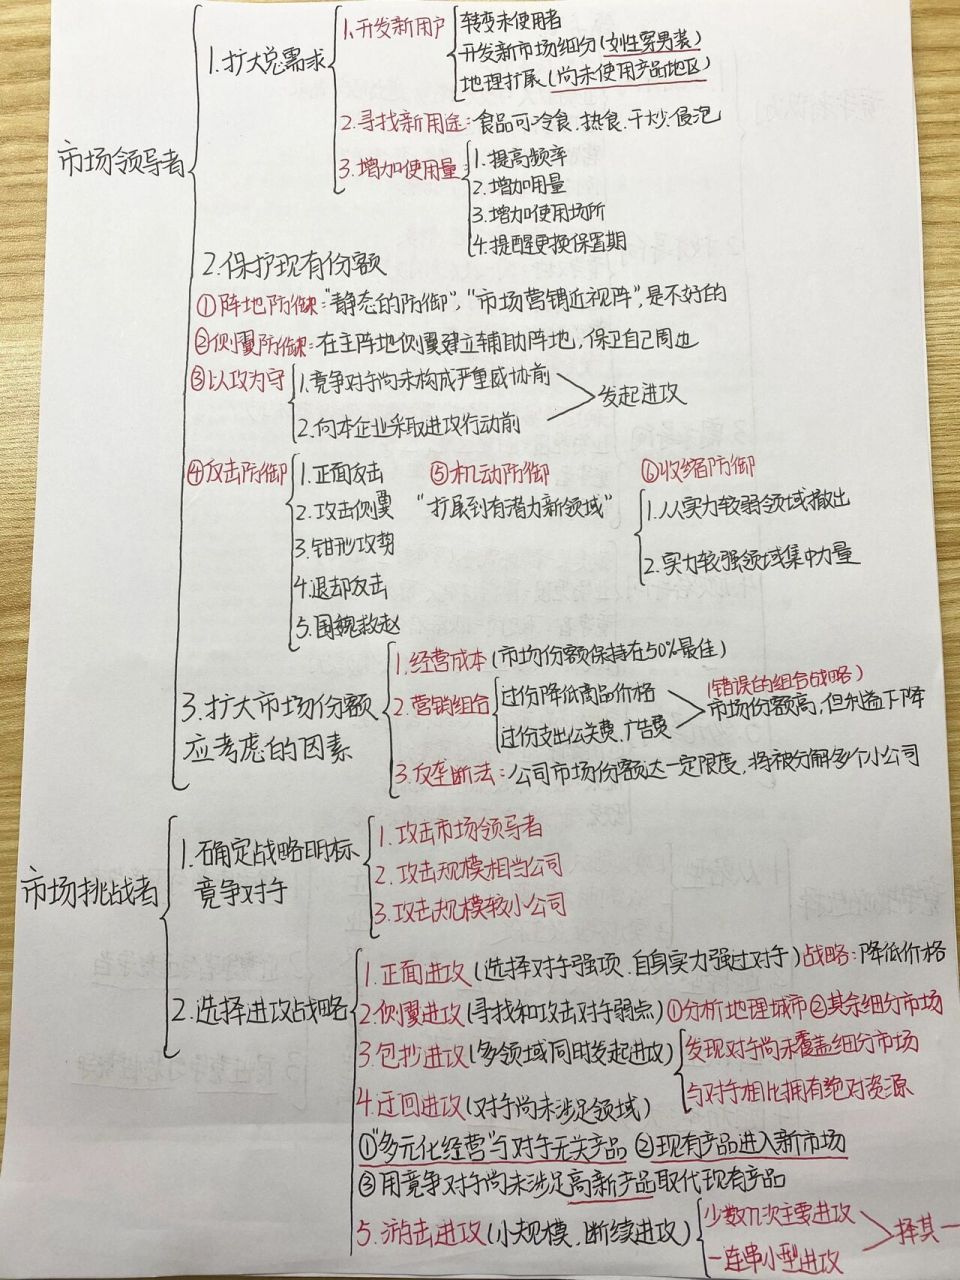 市场领导者
1.扩大总需求
1.开发新用户
转变未使用者
开发新市场细分(女性穿男装)
地理扩展(尚未使用产品地区)
2.寻找新用途:食品可冷食.热食.干炒.浸泡
3.增加使用量
1.提高频率
2.增加用量
3.增加使用场所
4.提醒更换保置期
2.保护现有份额
①阵地防御:"静态的防御","市场营销近视阵",是不好的
②侧翼防御:在主阵地侧翼建立辅助阵地,保卫自己周边
③以攻为守
1.竞争对手尚未构成严重威协前
2.向本企业采取进攻行动前
发起进攻
④反击防御
1.正面反击
2.攻击侧翼
3.钳形攻势
4.退却反击
5.围魏救赵
⑤机动防御
"扩展到有潜力新领域"
⑥收缩防御
1.从实力较弱领域撤出
2.实力较强领域集中力量
3.扩大市场份额
应考虑的因素
1.经营成本(市场份额保持在50%最佳)
2.营销组合
过份降低商品价格
过份支出公关费.广告费
(错误的组合战略)
市场份额高,但利益下降
3.反垄断法:公司市场份额达一定限度,将被分解多个小公司
市场挑战者
1.确定战略目标
竞争对手
1.攻击市场领导者
2.攻击规模相当公司
3.攻击规模较小公司
2.选择进攻战略
1.正面进攻(选择对手强项.自身实力强过对手)战略:降低价格
2.侧翼进攻(寻找和攻击对手弱点)①分析地理城市②其余细分市场
3.包抄进攻(多领域同时发起进攻)
发现对手尚未覆盖细分市场
与对手相比拥有绝对资源
4.迂回进攻(对手尚未涉足领域)
①"多元化经营"与对手无关产品 ②现有产品进入新市场
③用竞争对手尚未涉足高新产品取代现有产品
5.游击进攻(小规模.断续进攻)
少数几次主要进攻
一连串小型进攻
择其一